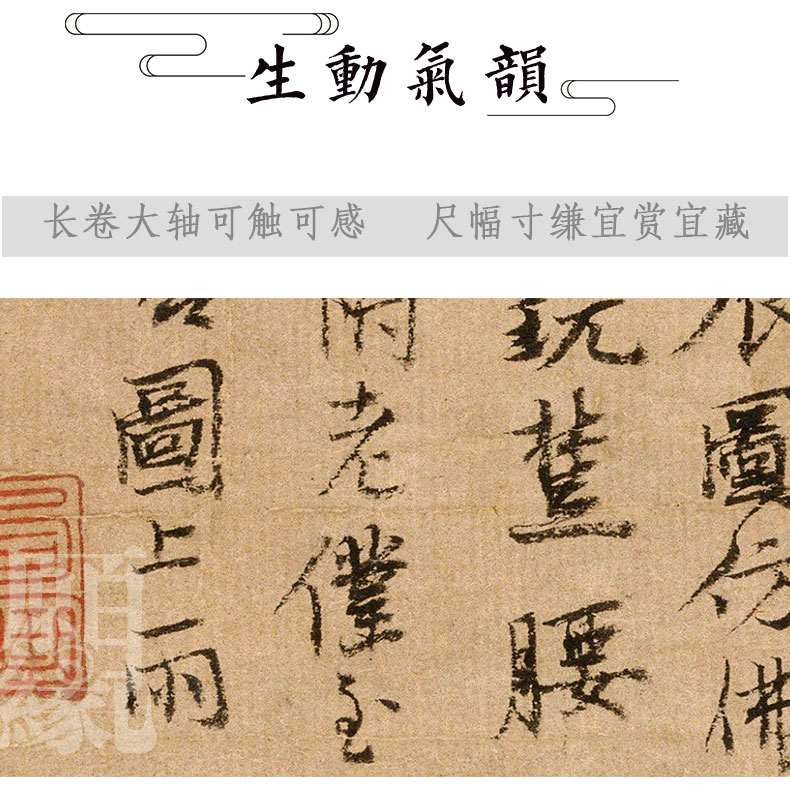 生動氣韻
长卷大轴可触可感 尺幅寸缣宜赏宜藏
圖仿佛
玩 腰
老僕至
圖上雨